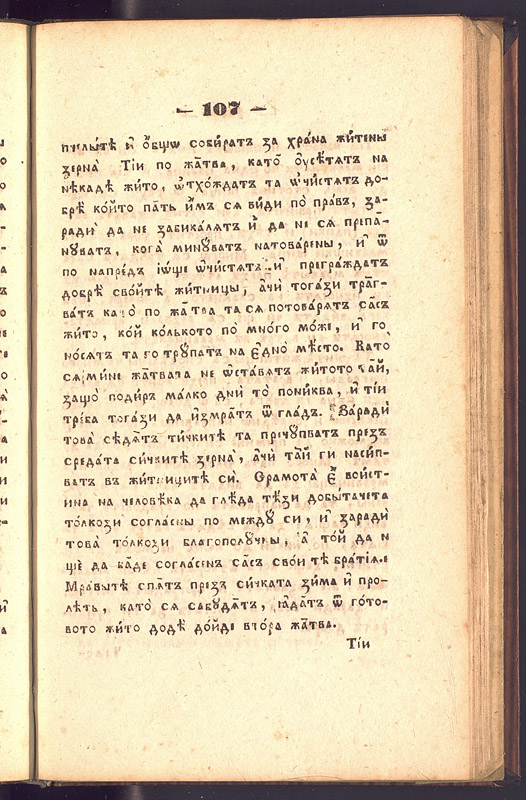 — 107 —
пчелы́тѣ и҆ о҆́бщѡ соби́ратъ за хра́на жи́тены
зерна̀ Ті́и по жѧ́тва, като̀ ᲂу҆сѣ́тятъ на
нѣ́кадѣ жи́то, ѿхо́ждатъ та ѡ҆чи́стятъ до-
брѣ̀ ко́йто пѧ́ть и҆̀мъ ся ви́ди по пра́въ, за-
радѝ да не забика́лятъ и҆̀ да не ся препѧ́-
нуватъ, кога̀ мину́ватъ натова́рены, и҆̀ ѿ
по напре́дъ і҆ѡ́ще ѡ҆чи́стятъ и҆̀ прегра́ждатъ
добрѣ̀ сво́йтѣ жи́тницы, а҆чѝ тога́зи трѧ́г-
ватъ като̀ по жѧ́тва та ся потова́рятъ сѧ́съ
жи́то, ко́й ко́лькото по мно́го мо́же, и҆̀ го
но́сятъ та го трꙋ́патъ на є҆дно̀ мѣ́сто. Като̀
ся ми́не жѧ́твата не ѡ҆ста́вятъ жи́тото та́й,
защо̀ поди́ръ ма́лко днѝ то пони́ква, и҆̀ ті́и
трѣ́ба тога́зи да и҆змра́тъ ѿ гла́дъ. Зарадѝ
това̀ сѣдѧ́тъ ти́чкитѣ та пречꙋ́пватъ презъ
среда́та си́чкитѣ зерна̀, а҆чѝ та́й ги наси́п-
ватъ въ жи́тницитѣ сѝ. Срамота̀ є҆̀ во́ист-
ина на человѣ́ка да глѣ́да тѣ́зи добы́тачета
то́лкози согла́сны по междꙋ̀ си, и҆̀ зарадѝ
това̀ то́лкози благополꙋ́чны, а҆̀ то́й да н
щѐ да бѧ́де согла́сенъ сѧ́съ сво́и тѣ бра́тія.е
Мра́вытѣ спѧ́тъ презъ си́чката зи́ма и҆̀ про-
лѣ́ть, като̀ ся сабꙋ́дятъ, ꙗ҆да́тъ ѿ гото́-
вото жи́то додѣ̀ до́йде вто́ра жѧ́тва.
Ті́и